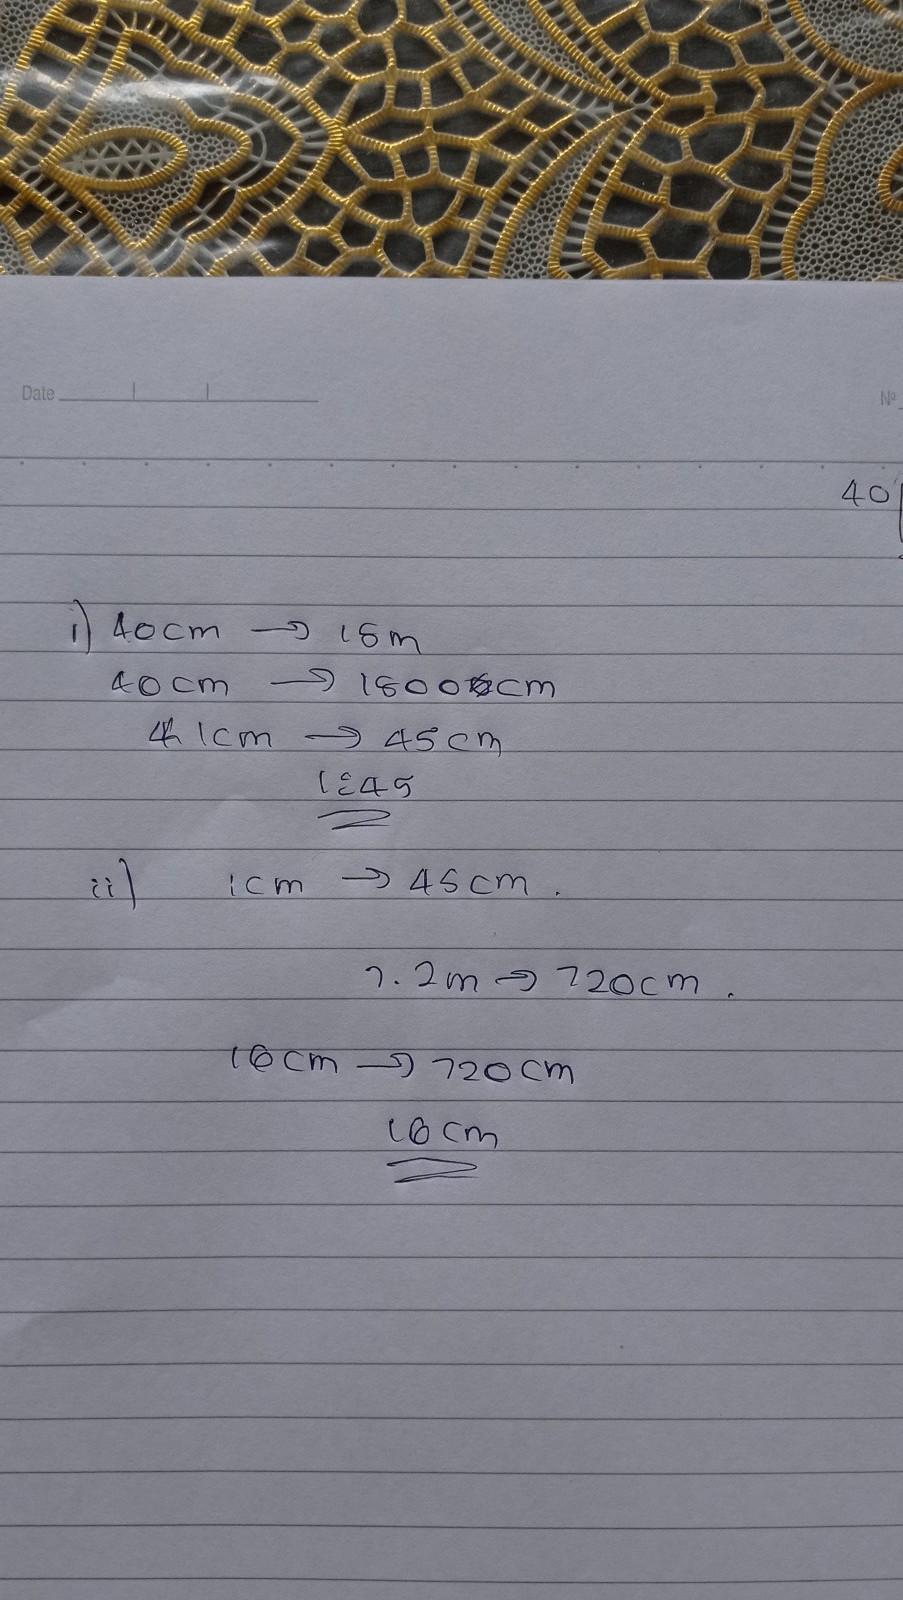 Date
Nº
40
i) 40cm → 18m
40cm → 1800cm
1cm → 45cm
1:45
ii) 1cm → 45cm.
7.2m → 720cm.
16cm → 720cm
16cm